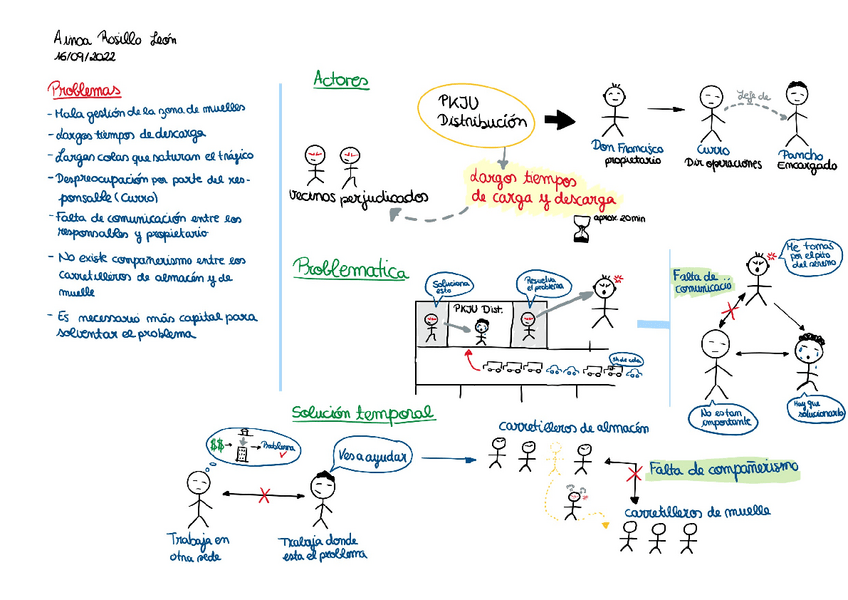 Ainoa Rosillo León
16/09/2022
Problemas
- Mala gestión de la zona de muelles
- Largos tiempos de descarga
- Largas colas que saturan el tráfico
- Despreocupación por parte del res-
ponsable (Curro)
- Falta de comunicación entre los
responsables y propietario
- No existe compañerismo entre los
carretilleros de almacén y de
muelle
- Es necesario más capital para
solventar el problema
Actores
PKJU
Distribución
Don Francisco
propietario
Curro
Dir operaciones
Jefe de
Pancho
Encargado
vecinos perjudicados
Largos tiempos
de carga y descarga
aprox 20min
Problematica
Soluciona
esto
PKJU Dist.
Resuelva
el problema
1h de cola
Falta de ..
comunicació
Me tomas
por el pito
del sereno
No es tan
importante
Hay que
solucionarlo
Solución temporal
$$
Problema
Ves a ayudar
Trabaja en
otra sede
Trabaja donde
esta el problema
carretilleros de almacén
Falta de compañerismo
carretilleros de muelle